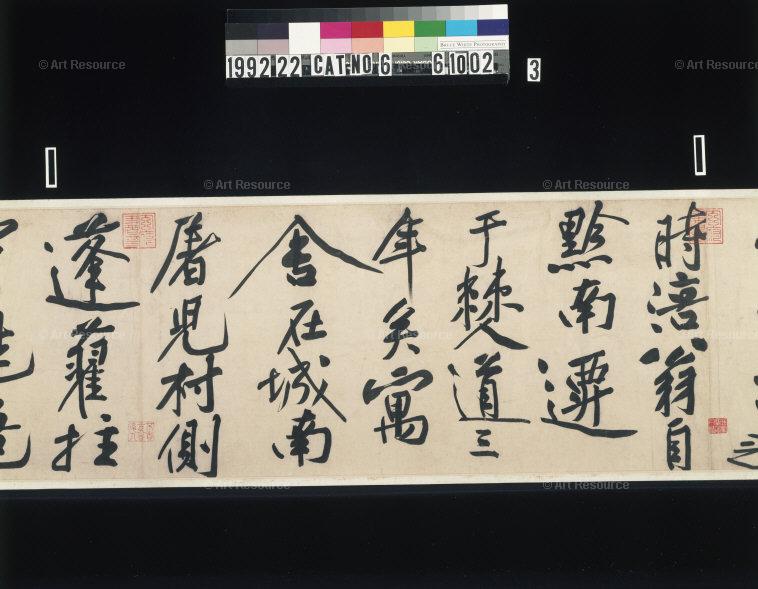 1992-22 CAT·NO 6 61002 3
BRUCE WHITE PHOTOGRAPHY
© Art Resource
© Art Resource
© Art Resource
© Art Resource
時涪翁自
黔南遷
于僰道三
年矣寓
舍在城南
屠兒村側
蓬藋拄
© Art Resource
© Art Resource
© Art Resource
© Art Resource
© Art Resource
© Art Resource